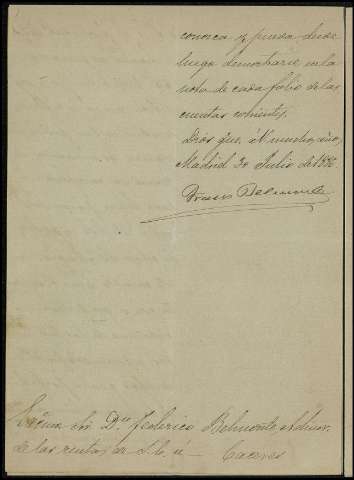 conozca y pueda desde
luego demostrarse en la
nota de cada folio de las
cuentas corrientes.
Dios gue. á V. muchos años,
Madrid 30 Julio de
Belmonte
Dn. Federico Belmonte, Admor.
de las rentas de S. E. á — Caceres